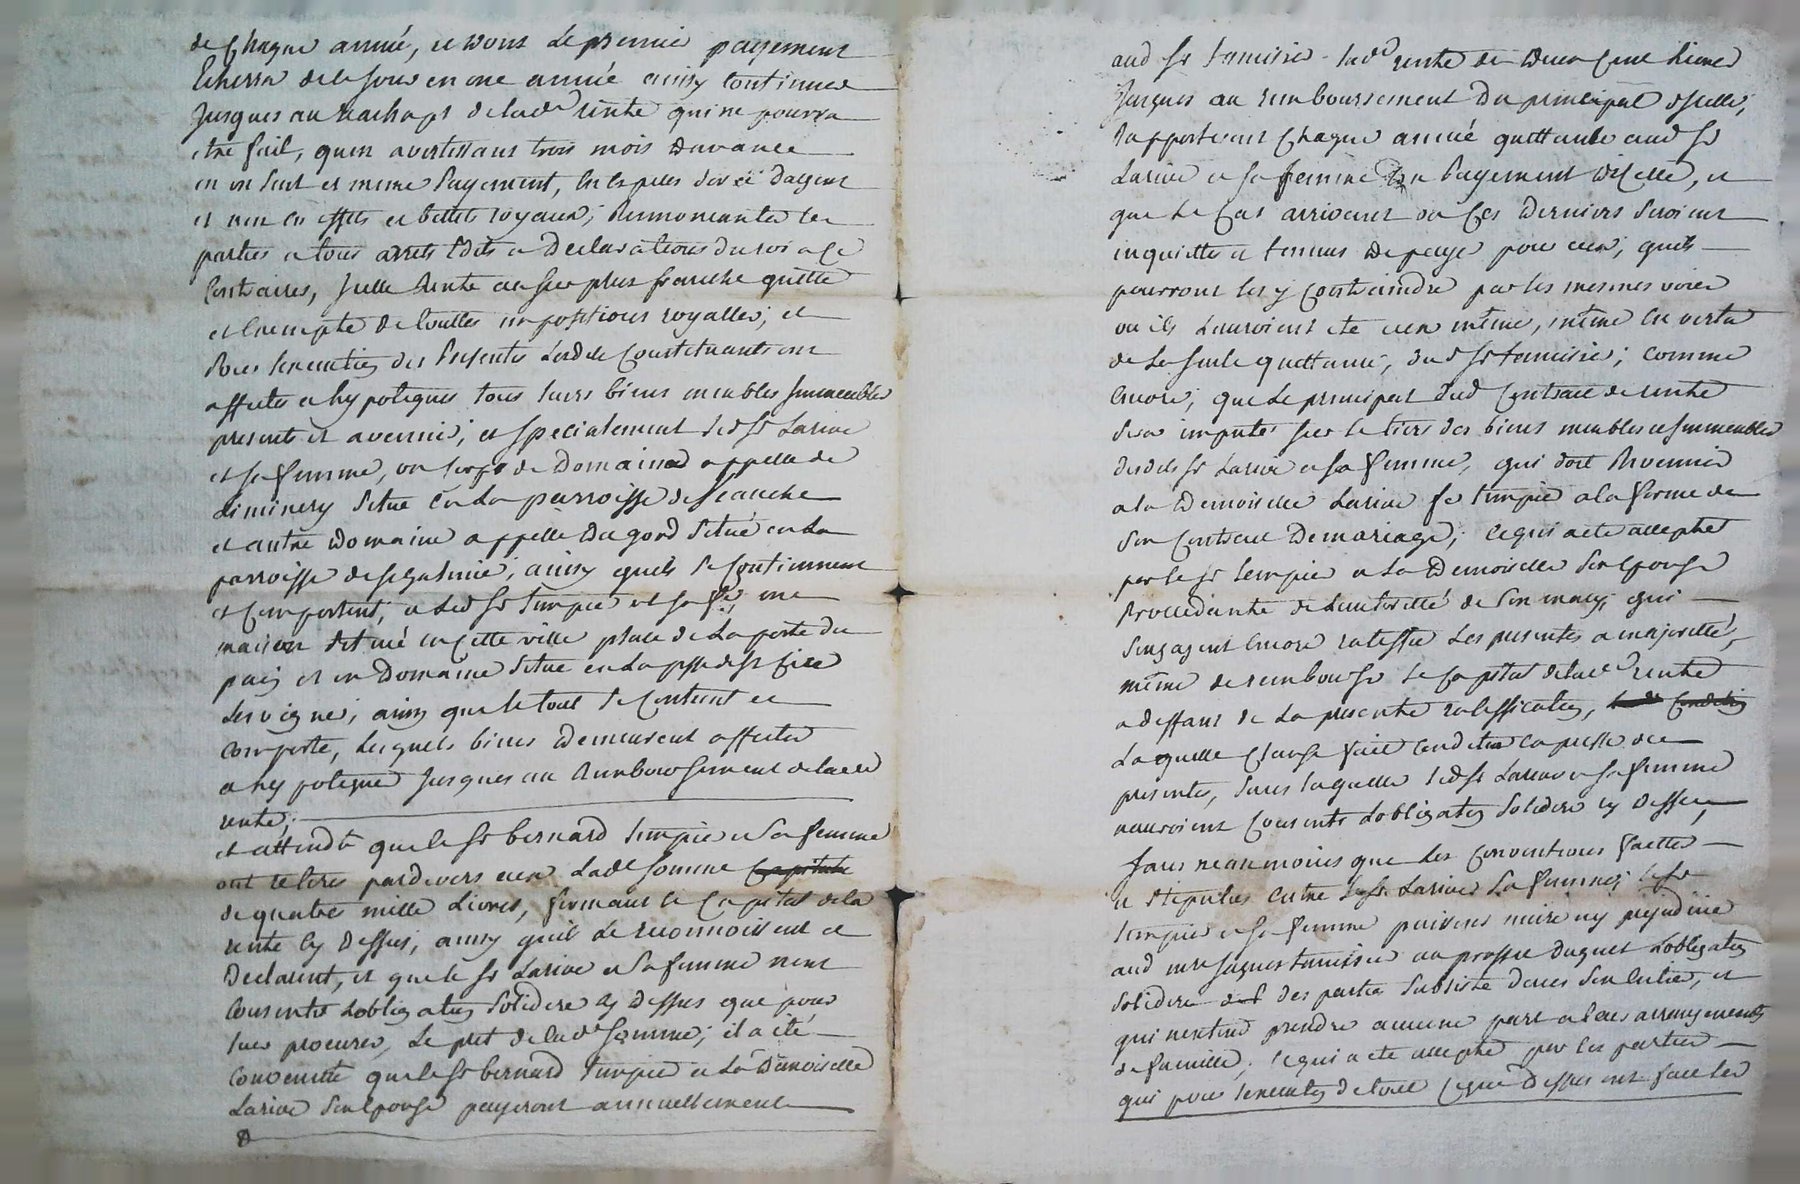 de chaque année, et dont le premier payement
Echerra de ce jour en une année ainsy continuer
Jusques au rachapt de lad rente qui ne pourra
etre fait, quen avertissant trois mois davance
en un seul et meme payement, en especes dor et dargent
et non en effets et billets royaux; Renoncantes les
parties a tous arrets Edits et Declarations du roi a ce
Contraires, Jcelle Rente au surplus franche quitte
et Exempte de touttes impositions royalles; et
Pour lexecution des Presentes lesdits Constituants ont
affectes et hypotequés tous leurs biens meubles Jmmeubles
presents et avenirs; et specialement led Sr Larive
et sa femme, un corps de Domaine appellé de
Liminery Situé en La parroisse de
et autre Domaine appellé Du gord Situé en La
parroisse de, ainsy quils Se Contiennent
et Comportent; et Led Sr Simpie et sa fe, une
maison Situé en Cette ville place de La porte du
paiz et un Domaine Situé en La psse de St
Les vignes; ainsy que le tout Se Contient et
Comporte, Lesquels biens Demeurent affectés
et hypotequé Jusques au Rembousement de lade
rente;
et attendu que le Sr bernard Simpie et Sa femme
ont retirés pardevers eux Lade Somme Capitale
de quatre mille Livres, formant le Capital de la
rente Cy Dessus, ainsy quil Le reconnoissent et
Declarent, et que le Sr Larive et Sa femme nont
Consentis Lobligation Solidere Cy Dessus que pour
leur procurer, Le pret de lade Somme; il a été
Convenüe que le Sr bernard Simpie et La Demoiselle
Larive Son Epouse payeront annuellement
aud Sr lade rente de Deux Cent Livres
Jusques au remboursement Du principal dJcelle;
Rapporteront Chaque année quittance aud Sr
Larive et Sa femme Du Payement Dicelle, et
que Le Cas arrivent ou Ces Derniers Seroient
inquiettes et tennus De payer pour eux; quils
pourront les y Contraindre par les mesmes voies
ou ils Lauroient ete eux même, même En vertu
de La Seule quittance, dud Sr; Comme
Encore; que Le principal Dud Contract de rente
Sera imputé Sur le tiers des biens meubles et Jmmeubles
desdits Sr Larive et Sa femme, qui doit Revenir
a La Demoiselle Larive fe Simpie a la forme de
Son Contract De mariage; Ce qui a ete accepté
par le Sr Simpie et La Demoiselle Son Epouse
Procedante de Lautorité de Son mary; qui
Sengagent Encore ratiffier Les presentes a majorité,
même de rembourser Le Capital de lad rente
a deffaut de La presente ratiffication,
Laquelle Clause fait Condition Expresse des
presentes, Sans laquelle led Sr Larive et Sa femme
nauroient Consentis Lobligation Solidere cy Dessus,
Sans neanmoins que Les Conventions faittes
et Stipulées Entre le Sr Larive Sa femme; le Sr
Simpie et Sa femme puissent nuire ny prejudicier
aud me Jaques au proffit Duquel Lobligation
Solidere des parties Subsiste Dans Son Entier, et
qui nentend prendre aucune part a leurs arrangements
de famille; Ce qui a ete accepté par les parties
qui pour lexecution de tout Ce que Dessus ont fait Les